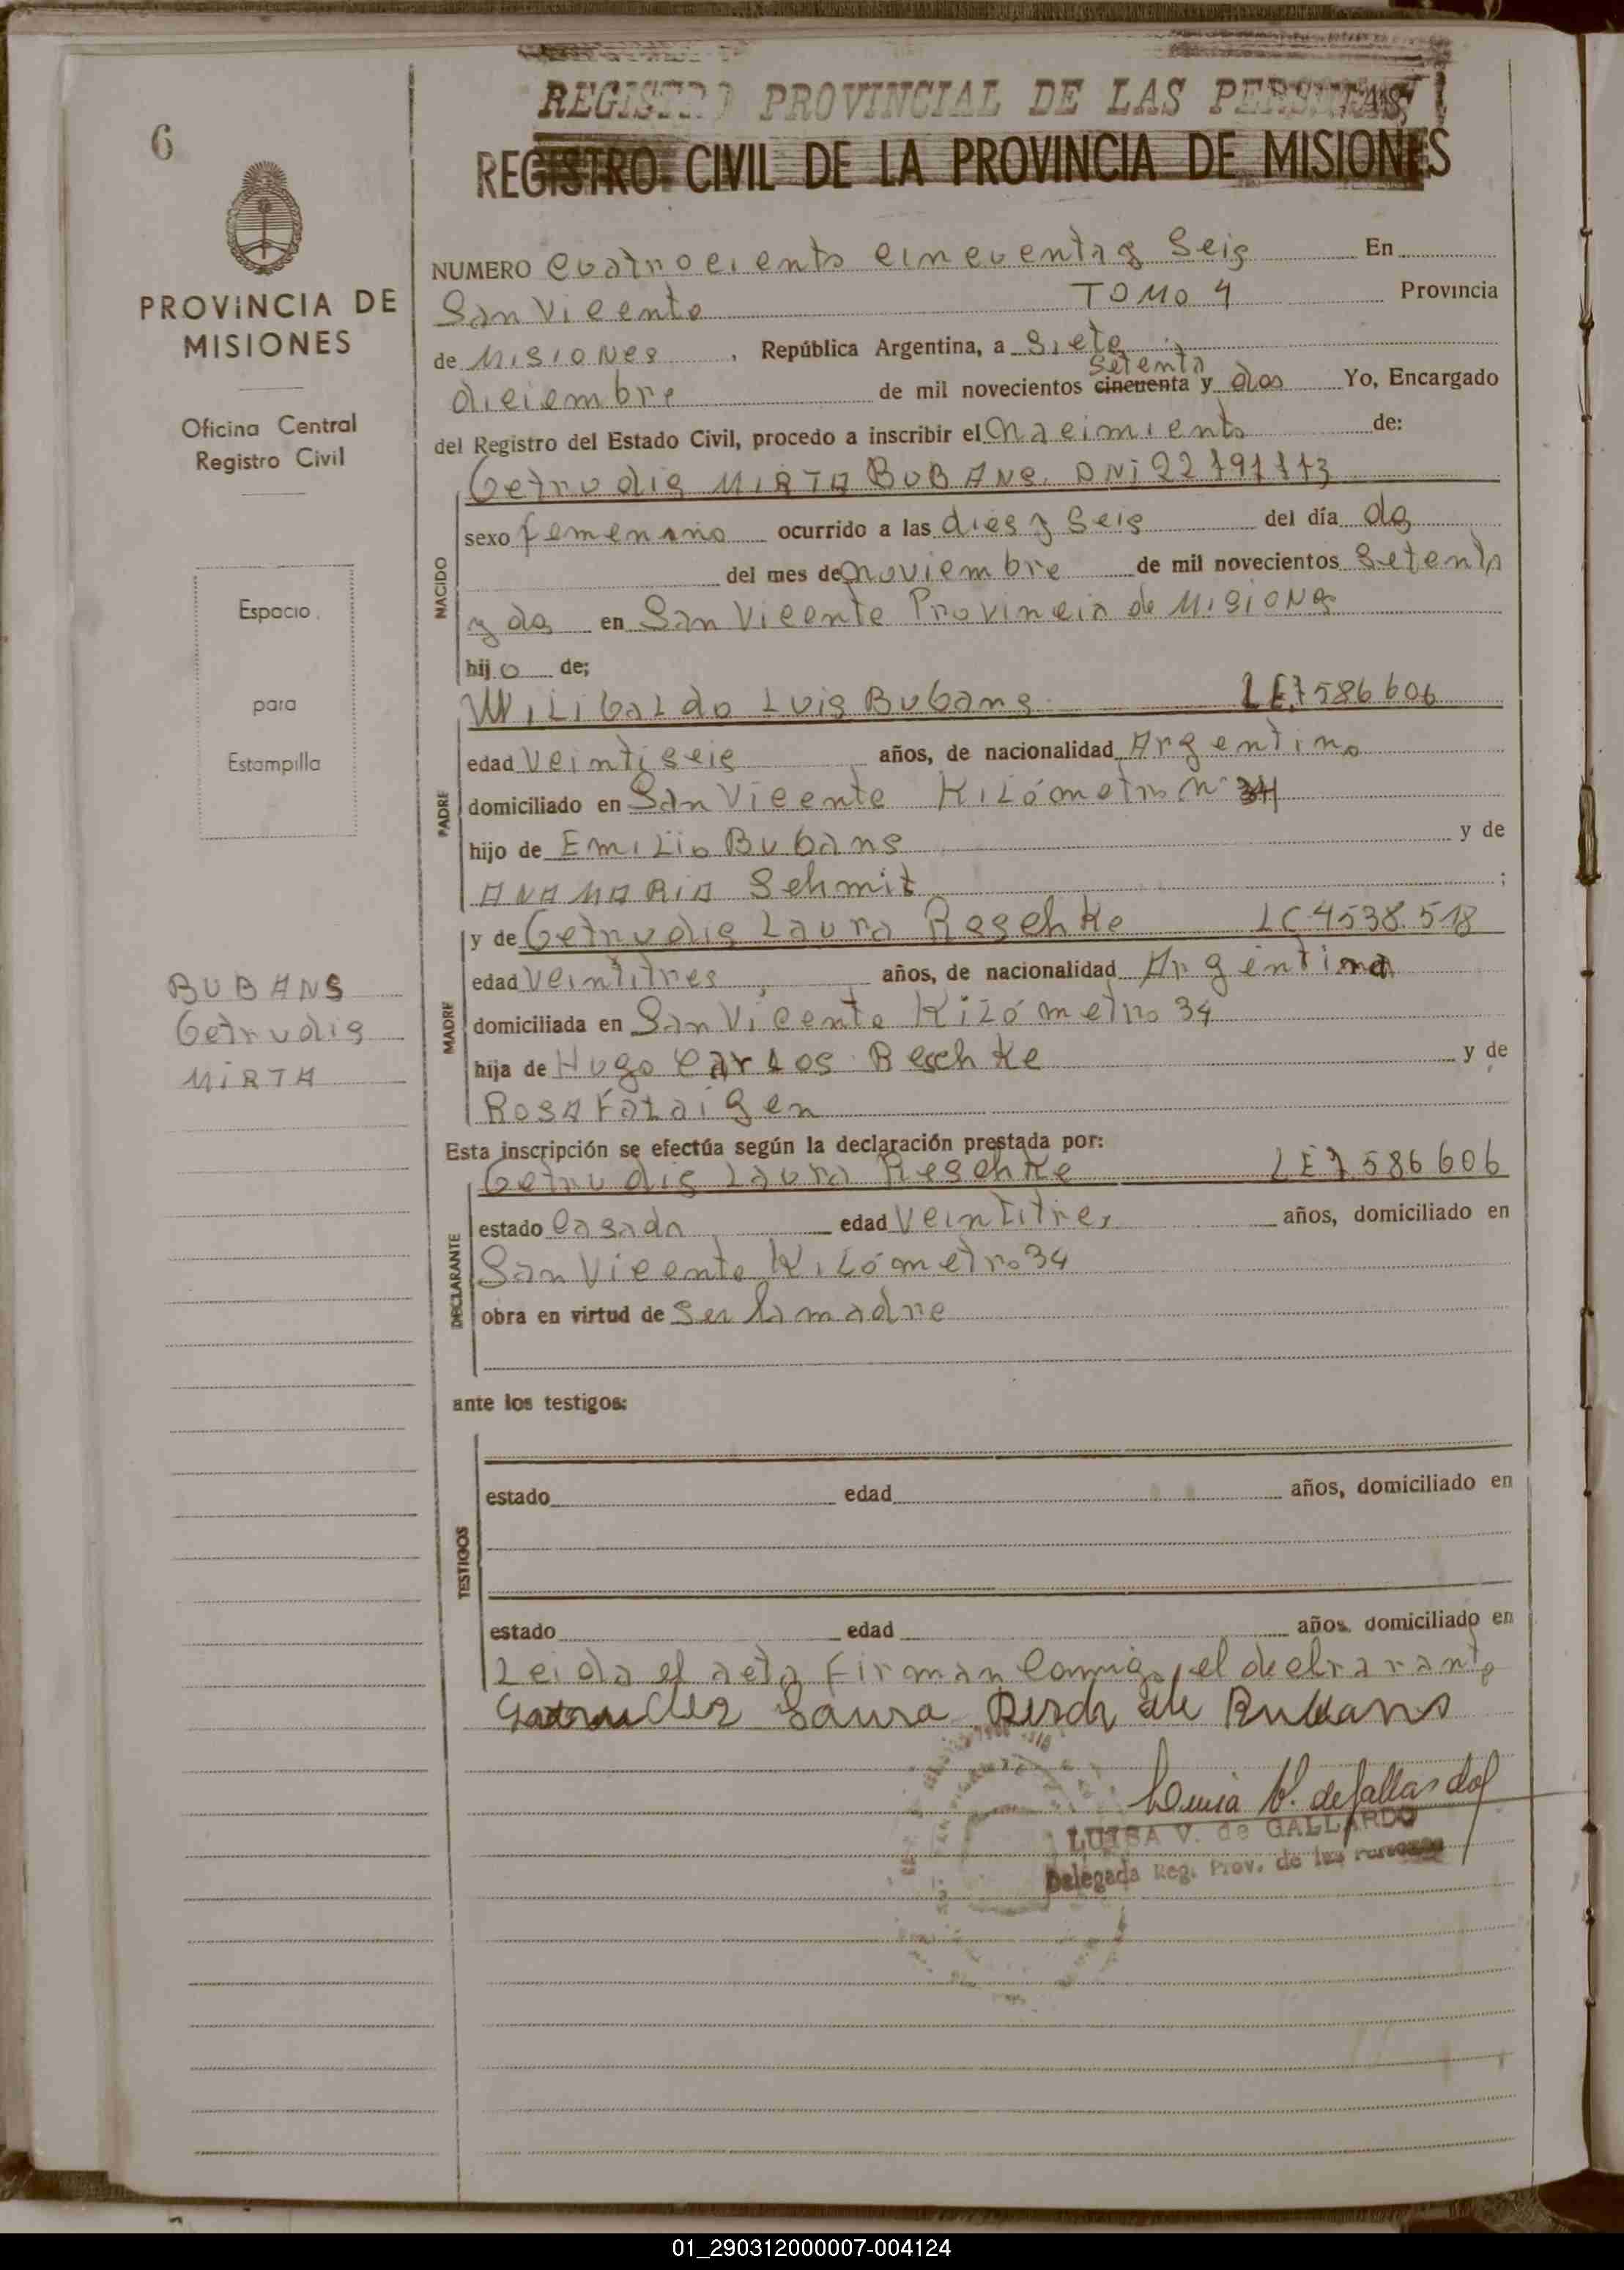 6
REGISTRO PROVINCIAL DE LAS PERSONAS
REGISTRO CIVIL DE LA PROVINCIA DE MISIONES
PROVINCIA DE
MISIONES
Oficina Central
Registro Civil
Espacio
para
Estampilla
BUBANS
Getrudis
MiRTA
NUMERO Cuatrociento cincuenta y Seis En
San Vicente TOMO 4 Provincia
de MISIONES, República Argentina, a Siete
setenta
diciembre de mil novecientos cincuenta y dos Yo, Encargado
del Registro del Estado Civil, procedo a inscribir el nacimiento de:
Getrudis MIRTA BUBANS. DNi 22791773
NACIDO
sexo femenino ocurrido a las dies y Seis del día dos
del mes de noviembre de mil novecientos Setenta
y dos en San Vicente Provincia de MISIONES
hijo de;
Wilibaldo Luis Bubans LE.7586606
PADRE
edad Veintiseis años, de nacionalidad Argentino
domiciliado en San Vicente Kilómetro Nº 34
hijo de Emilio Bubans y de
ANA MARIA Schmit ;
y de Getrudis Laura Reschke LC 4538.518
MADRE
edad Veintitres años, de nacionalidad Argentina
domiciliada en San Vicente Kilómetro 34
hija de Hugo Carlos Reschke y de
ROSA Fataigen
Esta inscripción se efectúa según la declaración prestada por:
Getrudis Laura Reschke LE 7586606
DECLARANTE
estado Casada edad Veintitres años, domiciliado en
San Vicente Kilómetro 34
obra en virtud de Ser la madre
ante los testigos:
TESTIGOS
estado edad años, domiciliado en
estado edad años. domiciliado en
Leida el acta Firman Conmigo, el declrarante
Laura de Bubans
Luisa V. de Gallardo
LUISA V. de GALLARDO
Delegada Reg. Prov. de las Personas
01_290312000007-004124